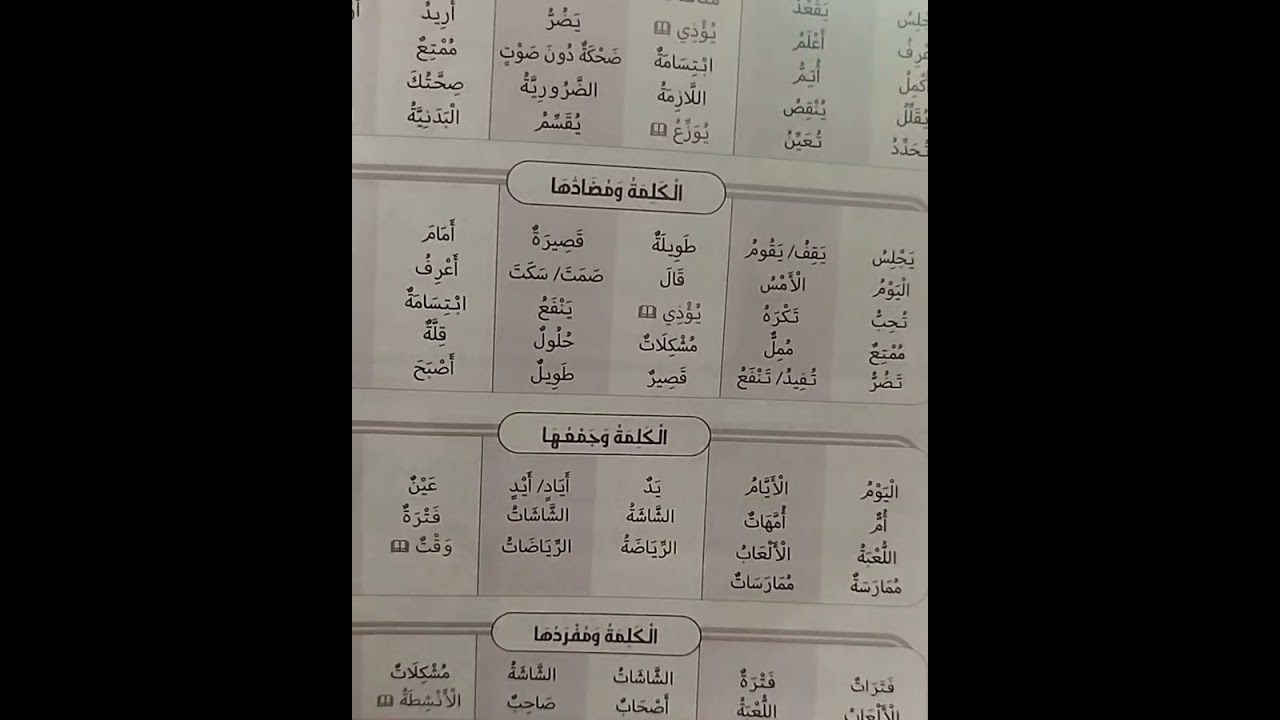 يَقْعُدُ
أَعْلَمُ يُؤْذِي يَضُرُّ أُرِيدُ
أُتِمُّ ابْتِسَامَةٌ ضَحْكَةٌ دُونَ صَوْتٍ مُمْتِعٌ
يُقَلِّلُ يُنْقِصُ اللَّازِمَةُ الضَّرُورِيَّةُ صِحَّتُكَ
تُحَدِّدُ تُعَيِّنُ يُوَزِّعُ يُقَسِّمُ الْبَدَنِيَّةُ
الْكَلِمَةُ وَمُضَادُّهَا
يَجْلِسُ يَقِفُ/ يَقُومُ طَوِيلَةٌ قَصِيرَةٌ أَمَامَ
الْيَوْمُ الْأَمْسُ قَالَ صَمَتَ/ سَكَتَ أَعْرِفُ
تُحِبُّ تَكْرَهُ يُؤْذِي يَنْفَعُ ابْتِسَامَةٌ
مُمْتِعٌ مُمِلٌّ مُشْكِلَاتٌ حُلُولٌ قِلَّةٌ
تَضُرُّ تُفِيدُ/ تَنْفَعُ قَصِيرٌ طَوِيلٌ أَصْبَحَ
الْكَلِمَةُ وَجَمْعُهَا
الْيَوْمُ الْأَيَّامُ يَدٌ أَيَادٍ/ أَيْدٍ عَيْنٌ
أُمٌّ أُمَّهَاتٌ الشَّاشَةُ الشَّاشَاتُ فَتْرَةٌ
اللُّعْبَةُ الْأَلْعَابُ الرِّيَاضَةُ الرِّيَاضَاتُ وَقْتٌ
مُمَارَسَةٌ مُمَارَسَاتٌ
الْكَلِمَةُ وَمُفْرَدُهَا
فَتَرَاتٌ فَتْرَةٌ الشَّاشَاتُ الشَّاشَةُ مُشْكِلَاتٌ
الْأَلْعَابُ اللُّعْبَةُ أَصْحَابٌ صَاحِبٌ الْأَنْشِطَةُ